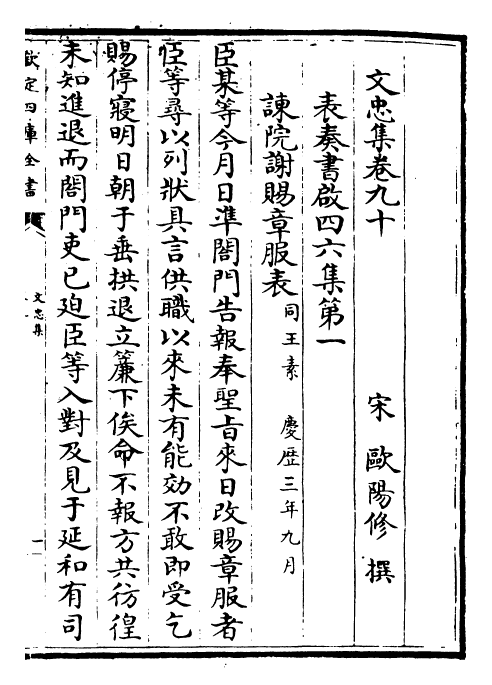 文忠集卷九十
宋 歐陽修 撰
表奏書啟四六集第一
諌院謝賜章服表 同王素 慶歴三年九月
臣某等今月日準閤門告報奉聖旨來日改賜章服者
臣等尋以列狀具言供職以來未有能効不敢即受乞
賜停寢明日朝于垂拱退立簾下俟命不報方共彷徨
未知進退而閤門吏已迫臣等入對及見于延和有司
欽定四庫全書
文忠集
一